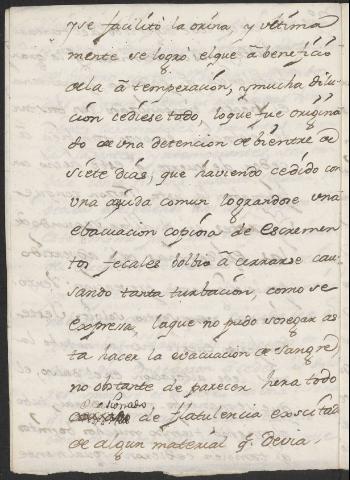 yse facilitó la orina, y ultima
mente se logró elque à benefició
dela àtemperación, y mucha dilu-
ción cediese todo, loque fue origina
do de una detencion de bientre de
siete dias, que haviendo cedido con
una ayuda comun lograndose una
evacuacion copiosa de escremen
tos fecales bolbió à cerrarse cau-
sando tanta turbación, como se
expresa, laque no pudo sosegar as
ta hacer la evacuación de sangre,
no obstante de parecer hera todo
de flatulencia exscitad
de algun material q. devia